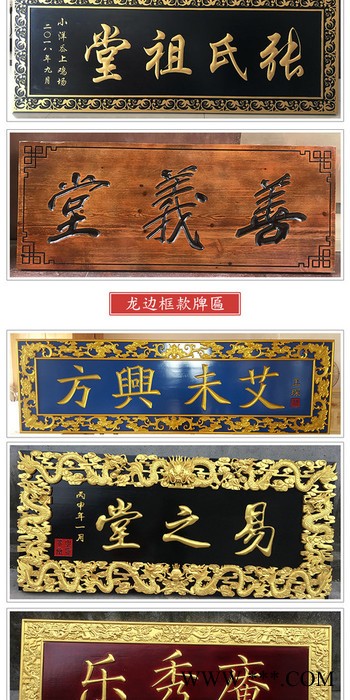 张氏祖堂
小洋上鸡场
二〇一八年九月
善義堂
龙边框款牌匾
方興未艾
易之堂
丙申年一月
乐秀庵
WWW.***.COM